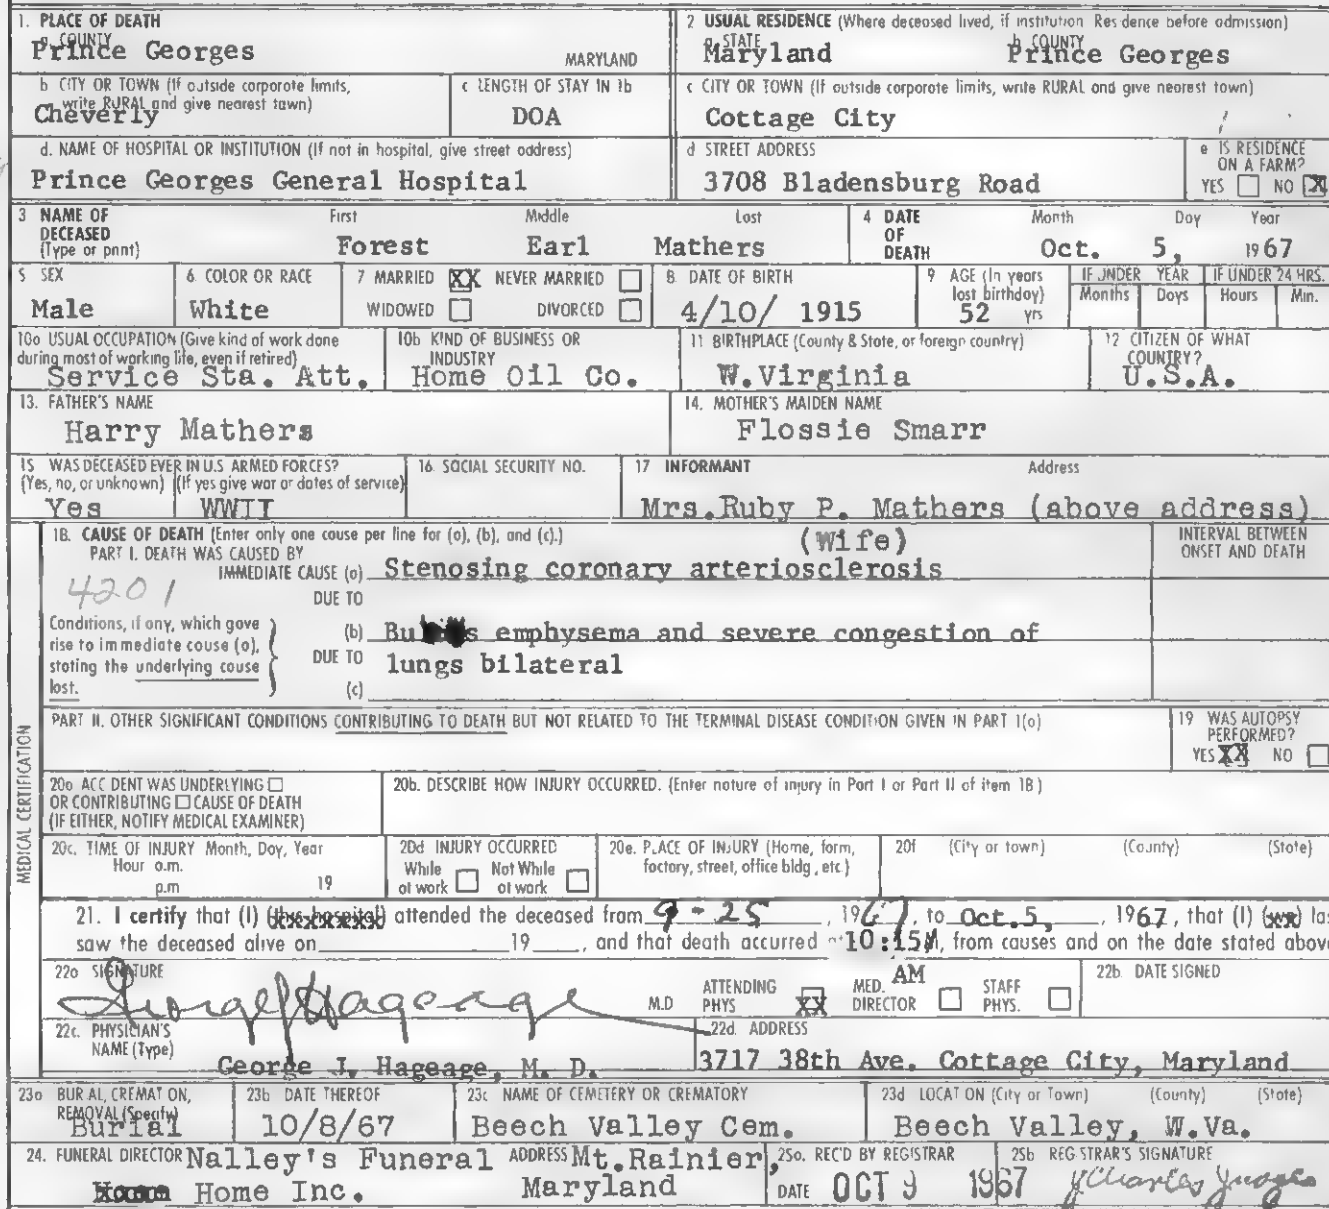 1. PLACE OF DEATH
a. COUNTY
Prince Georges MARYLAND
2 USUAL RESIDENCE (Where deceased lived, if institution Residence before admission)
a. STATE b COUNTY
Maryland Prince Georges
b CITY OR TOWN (If outside corporate limits, write RURAL and give nearest town)
Cheverly
c LENGTH OF STAY IN 1b
DOA
c CITY OR TOWN (If outside corporate limits, write RURAL and give nearest town)
Cottage City
d. NAME OF HOSPITAL OR INSTITUTION (If not in hospital, give street address)
Prince Georges General Hospital
d STREET ADDRESS
3708 Bladensburg Road
e IS RESIDENCE ON A FARM?
YES NO X
3 NAME OF DECEASED (Type or print)
First Middle Last
Forest Earl Mathers
4 DATE OF DEATH
Month Day Year
Oct. 5, 1967
5 SEX
Male
6. COLOR OR RACE
White
7 MARRIED XX NEVER MARRIED
WIDOWED DIVORCED
8 DATE OF BIRTH
4/10/ 1915
9 AGE (In years last birthday)
52 yrs
IF UNDER YEAR IF UNDER 24 HRS.
Months Days Hours Min.
10a USUAL OCCUPATION (Give kind of work done during most of working life, even if retired)
Service Sta. Att.
10b KIND OF BUSINESS OR INDUSTRY
Home Oil Co.
11 BIRTHPLACE (County & State, or foreign country)
W.Virginia
12 CITIZEN OF WHAT COUNTRY?
U.S.A.
13. FATHER'S NAME
Harry Mathers
14. MOTHER'S MAIDEN NAME
Flossie Smarr
15 WAS DECEASED EVER IN U.S ARMED FORCES?
(Yes, no, or unknown) (If yes give war or dates of service)
Yes WWII
16. SOCIAL SECURITY NO.
17 INFORMANT Address
Mrs.Ruby P. Mathers (above address)
(Wife)
18. CAUSE OF DEATH (Enter only one cause per line for (a), (b), and (c).)
PART I. DEATH WAS CAUSED BY
IMMEDIATE CAUSE (a) Stenosing coronary arteriosclerosis
INTERVAL BETWEEN ONSET AND DEATH
4201
DUE TO
Conditions, if any, which gave rise to immediate cause (a), stating the underlying cause last.
(b) emphysema and severe congestion of
DUE TO lungs bilateral
(c)
PART II. OTHER SIGNIFICANT CONDITIONS CONTRIBUTING TO DEATH BUT NOT RELATED TO THE TERMINAL DISEASE CONDITION GIVEN IN PART I(a)
19 WAS AUTOPSY PERFORMED?
YES XX NO
MEDICAL CERTIFICATION
20a ACCIDENT WAS UNDERLYING
OR CONTRIBUTING CAUSE OF DEATH
(IF EITHER, NOTIFY MEDICAL EXAMINER)
20b. DESCRIBE HOW INJURY OCCURRED. (Enter nature of injury in Part I or Part II of item 18)
20c. TIME OF INJURY Month, Day, Year
Hour a.m.
p.m 19
20d INJURY OCCURRED
While at work Not While at work
20e. PLACE OF INJURY (Home, farm, factory, street, office bldg, etc)
20f (City or town) (County) (State)
21. I certify that (I) (this hospital) attended the deceased from 9-25, 1967, to Oct.5, 1967, that (I) las
saw the deceased alive on 19 , and that death occurred 10:15 M, from causes and on the date stated above
AM
22a SIGNATURE
George J Hageage
M.D ATTENDING PHYS XX MED. DIRECTOR STAFF PHYS.
22b. DATE SIGNED
22c. PHYSICIAN'S NAME (Type)
George J. Hageage, M. D.
22d. ADDRESS
3717 38th Ave. Cottage City, Maryland
23a BURIAL, CREMATION, REMOVAL (Specify)
Burial
23b DATE THEREOF
10/8/67
23c NAME OF CEMETERY OR CREMATORY
Beech Valley Cem.
23d LOCATION (City or Town) (County) (State)
Beech Valley, W.Va.
24. FUNERAL DIRECTOR Nalley's Funeral
Home Inc.
ADDRESS Mt.Rainier,
Maryland
25a. REC'D BY REGISTRAR
DATE OCT 9 1967
25b REGISTRAR'S SIGNATURE
J Charles Judge